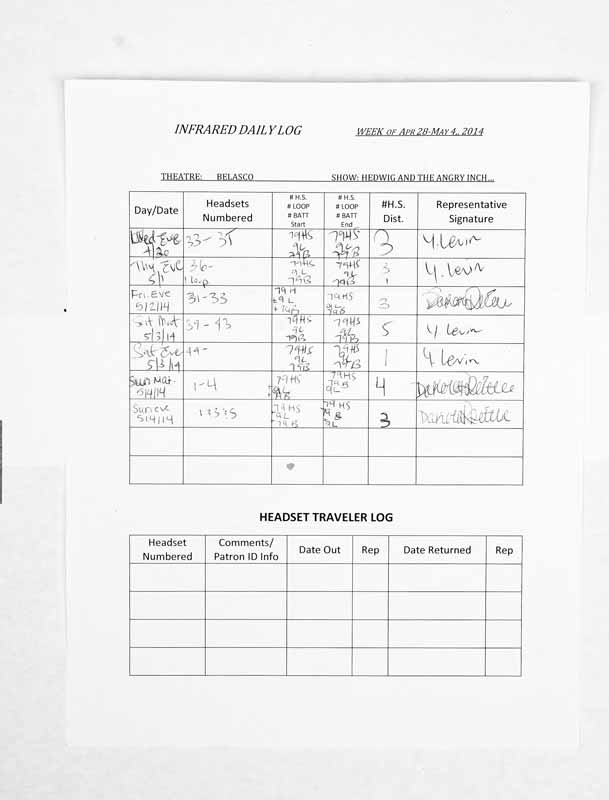 INFRARED DAILY LOG WEEK OF APR 28-MAY 4,, 2014
THEATRE: BELASCO SHOW: HEDWIG AND THE ANGRY INCH...
Day/Date Headsets Numbered # H.S. # LOOP # BATT Start # H.S. # LOOP # BATT End #H.S. Dist. Representative Signature
Wed Eve 33-35 79HS 9L 79B 79HS 9L 79B 3 Y. Levin
4/30
Thu Eve 36- 79HS 9L 79B 79HS 9L 79B 3 Y. Levin
5/1 1 loop 1
Fri. Eve 31-33 79H 9L 79HS 9L 79B 3
5/2/14
Sat Mat 39-43 79HS 9L 79B 79HS 9L 79B 5 Y Levin
5/3/14
Sat Eve 44- 79HS 9L 79B 79HS 9L 79B 1 Y Levin
5/3/14
Sun Mat. 1-4 79HS 9L 79B 79HS 79B 9L 4
5/4/14
Sun eve 79HS 9L 79B 79HS 79B 9L 3
5/4/14
HEADSET TRAVELER LOG
Headset Numbered Comments/ Patron ID Info Date Out Rep Date Returned Rep